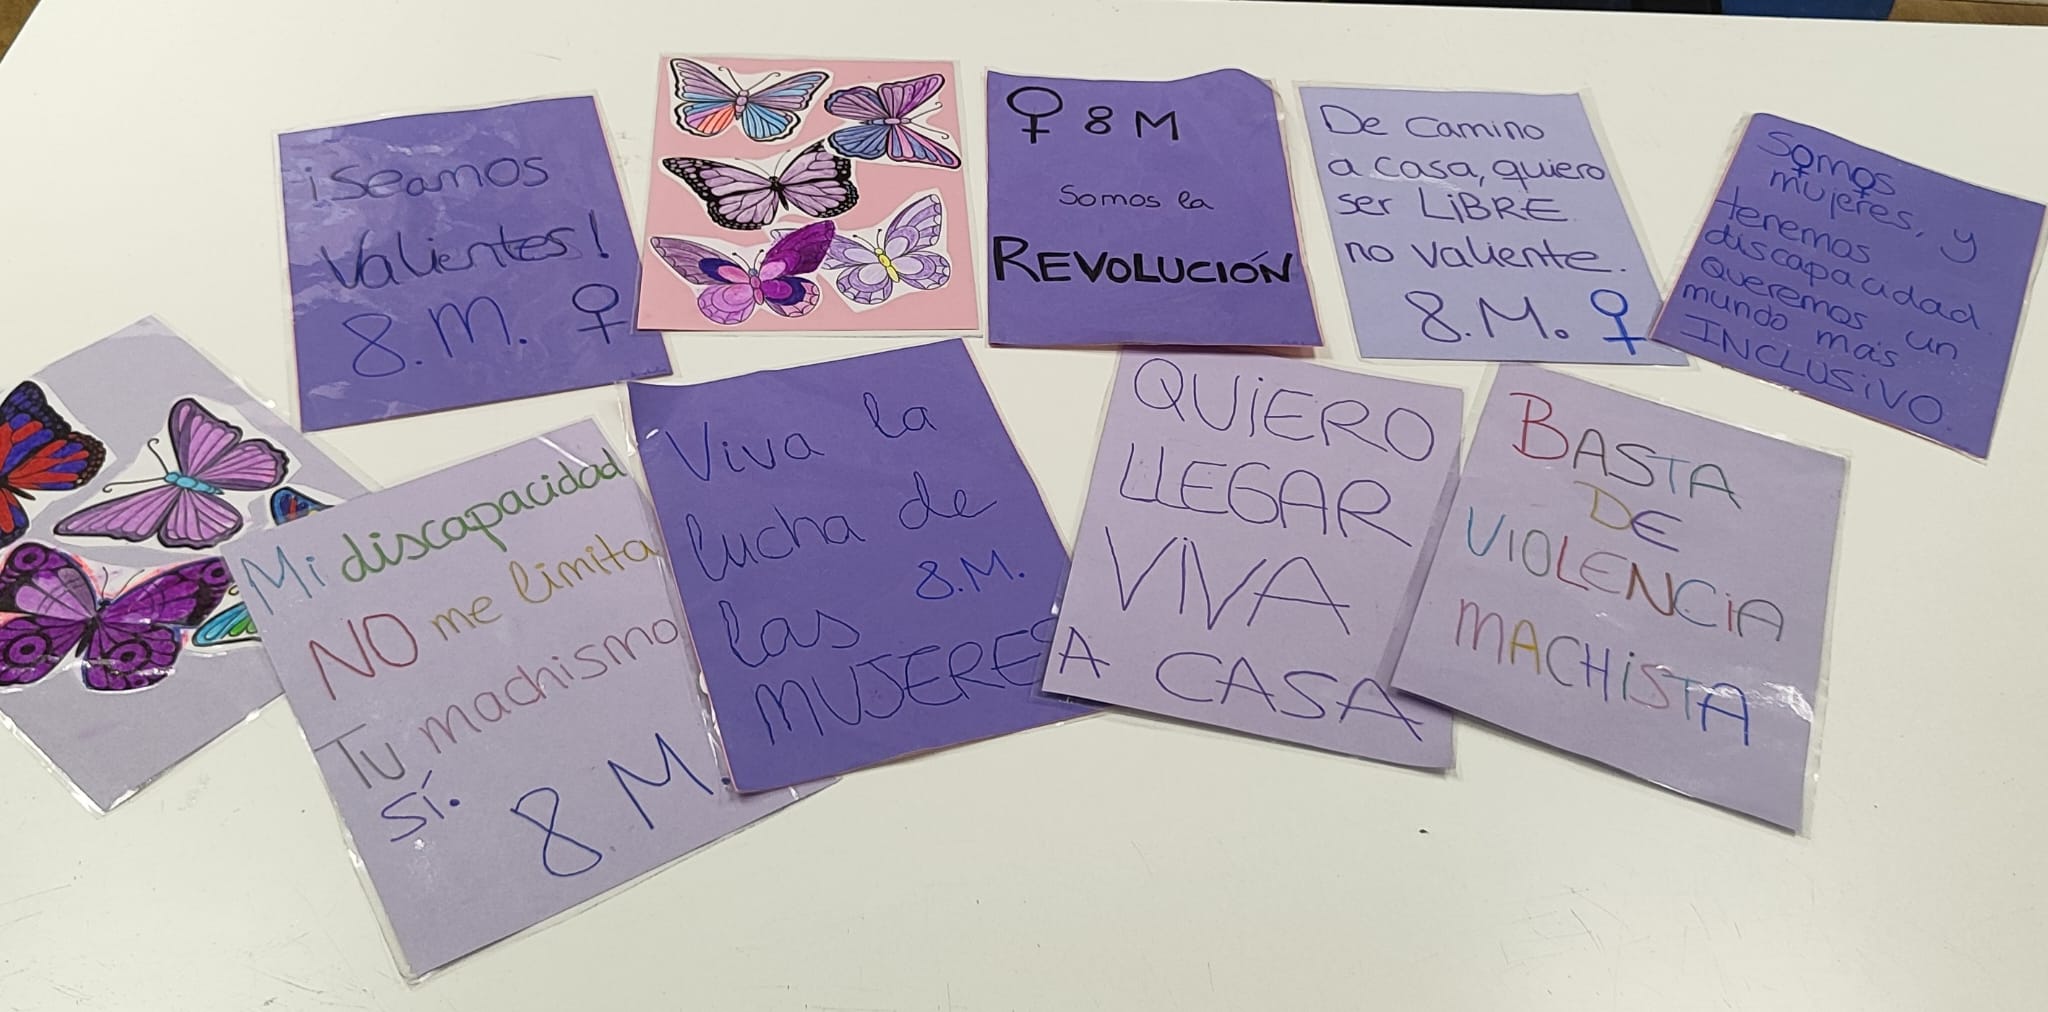 ¡Seamos
Valientes!
8.M. ♀
♀ 8 M
Somos la
REVOLUCIÓN
De camino
a casa, quiero
ser LiBRE
no valiente.
8.M. ♀
Somos
mujeres, y
tenemos
discapacidad.
Queremos un
mundo más
INCLUSiVO.
Mi discapacidad
NO me limita
Tu machismo
sí.
8 M.
Viva la
lucha de
8.M.
las
MUJERES
QUiERO
LLEGAR
ViVA
A CASA
BASTA
DE
ViOLENCiA
MACHiSTA